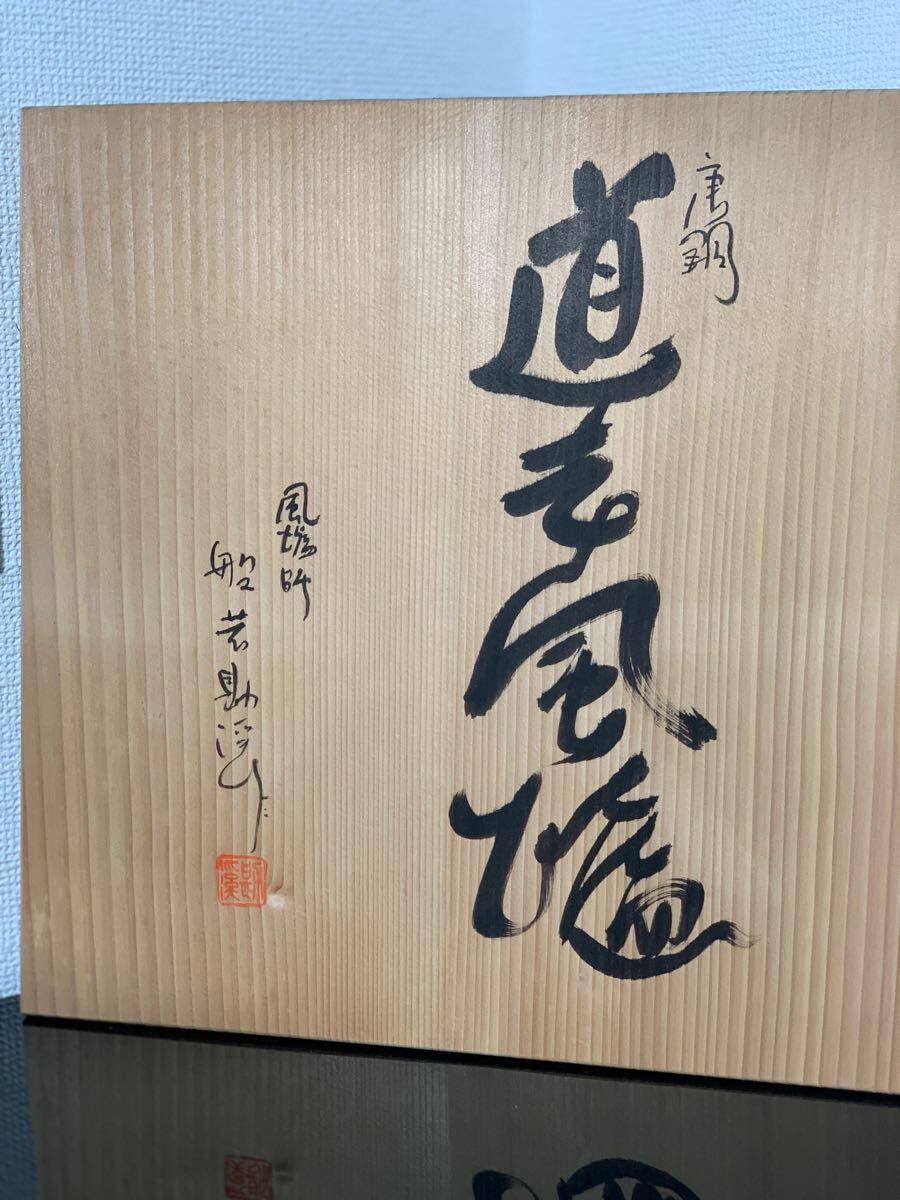 唐銅
道安風炉
風炉師
般若勘渓作
勘渓